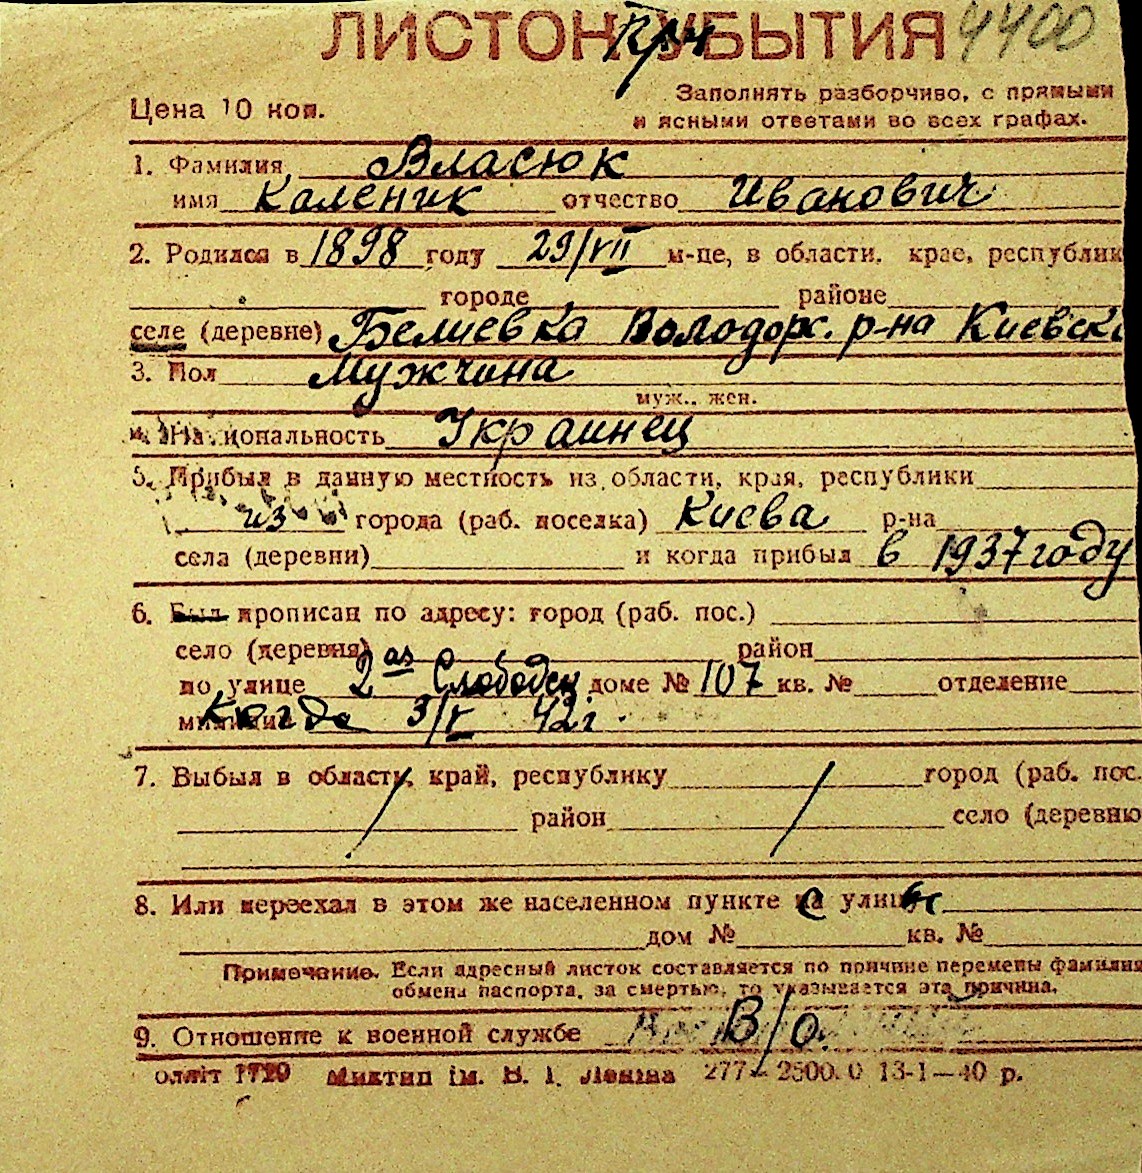 ЛИСТОК УБЫТИЯ 4400
При
Цена 10 коп.
Заполнять разборчиво, с прямыми
и ясными ответами во всех графах.
1. Фамилия Власюк
имя Каленик отчество Иванович
2. Родился в 1898 году 29/VII м-це, в области, крае, республик
городе районе
селе (деревне) Белиевка Володарс. р-на Киевско
3. Пол Мужчина
муж., жен.
4. Национальность Украинец
5. Прибыл в данную местность из области, края, республики
из города (раб. поселка) Киева р-на
села (деревни) и когда прибыл в 1937 году
6. Был прописан по адресу: город (раб. пос.)
село (деревня) район
по улице 2ая Слободск доме № 107 кв. № отделение
милиции когда 3/V 42 г.
7. Выбыл в область, край, республику город (раб. пос.
район село (деревню
8. Или переехал в этом же населенном пункте с улицы
дом № кв. №
Примечание. Если адресный листок составляется по причине перемены фамилии
обмена паспорта, за смертью, то указывается эта причина.
9. Отношение к военной службе В/о.
1720 Миктип ім. В. І. Леніна 277—2500.0 13-1—40 р.